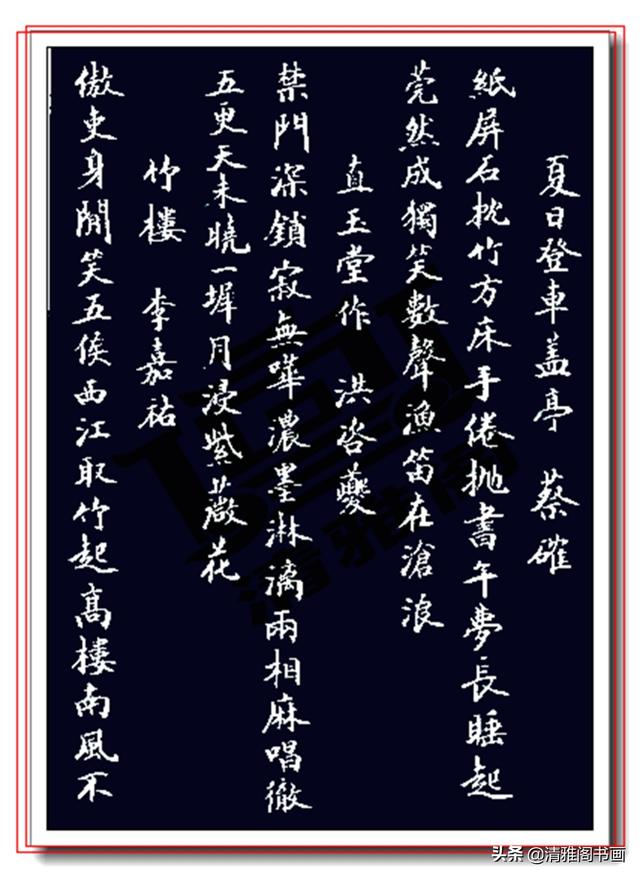 夏日登車盖亭 蔡確
紙屏石枕竹方床手倦抛書午夢長睡起
莞然成獨笑數聲漁笛在滄浪
直玉堂作 洪咨夔
禁門深鎖寂無嘩濃墨淋漓兩相麻唱徹
五更天未曉一墀月浸紫薇花
竹樓 李嘉祐
傲吏身閒笑五侯西江取竹起高樓南風不
清雅阁
头条 @清雅阁书画